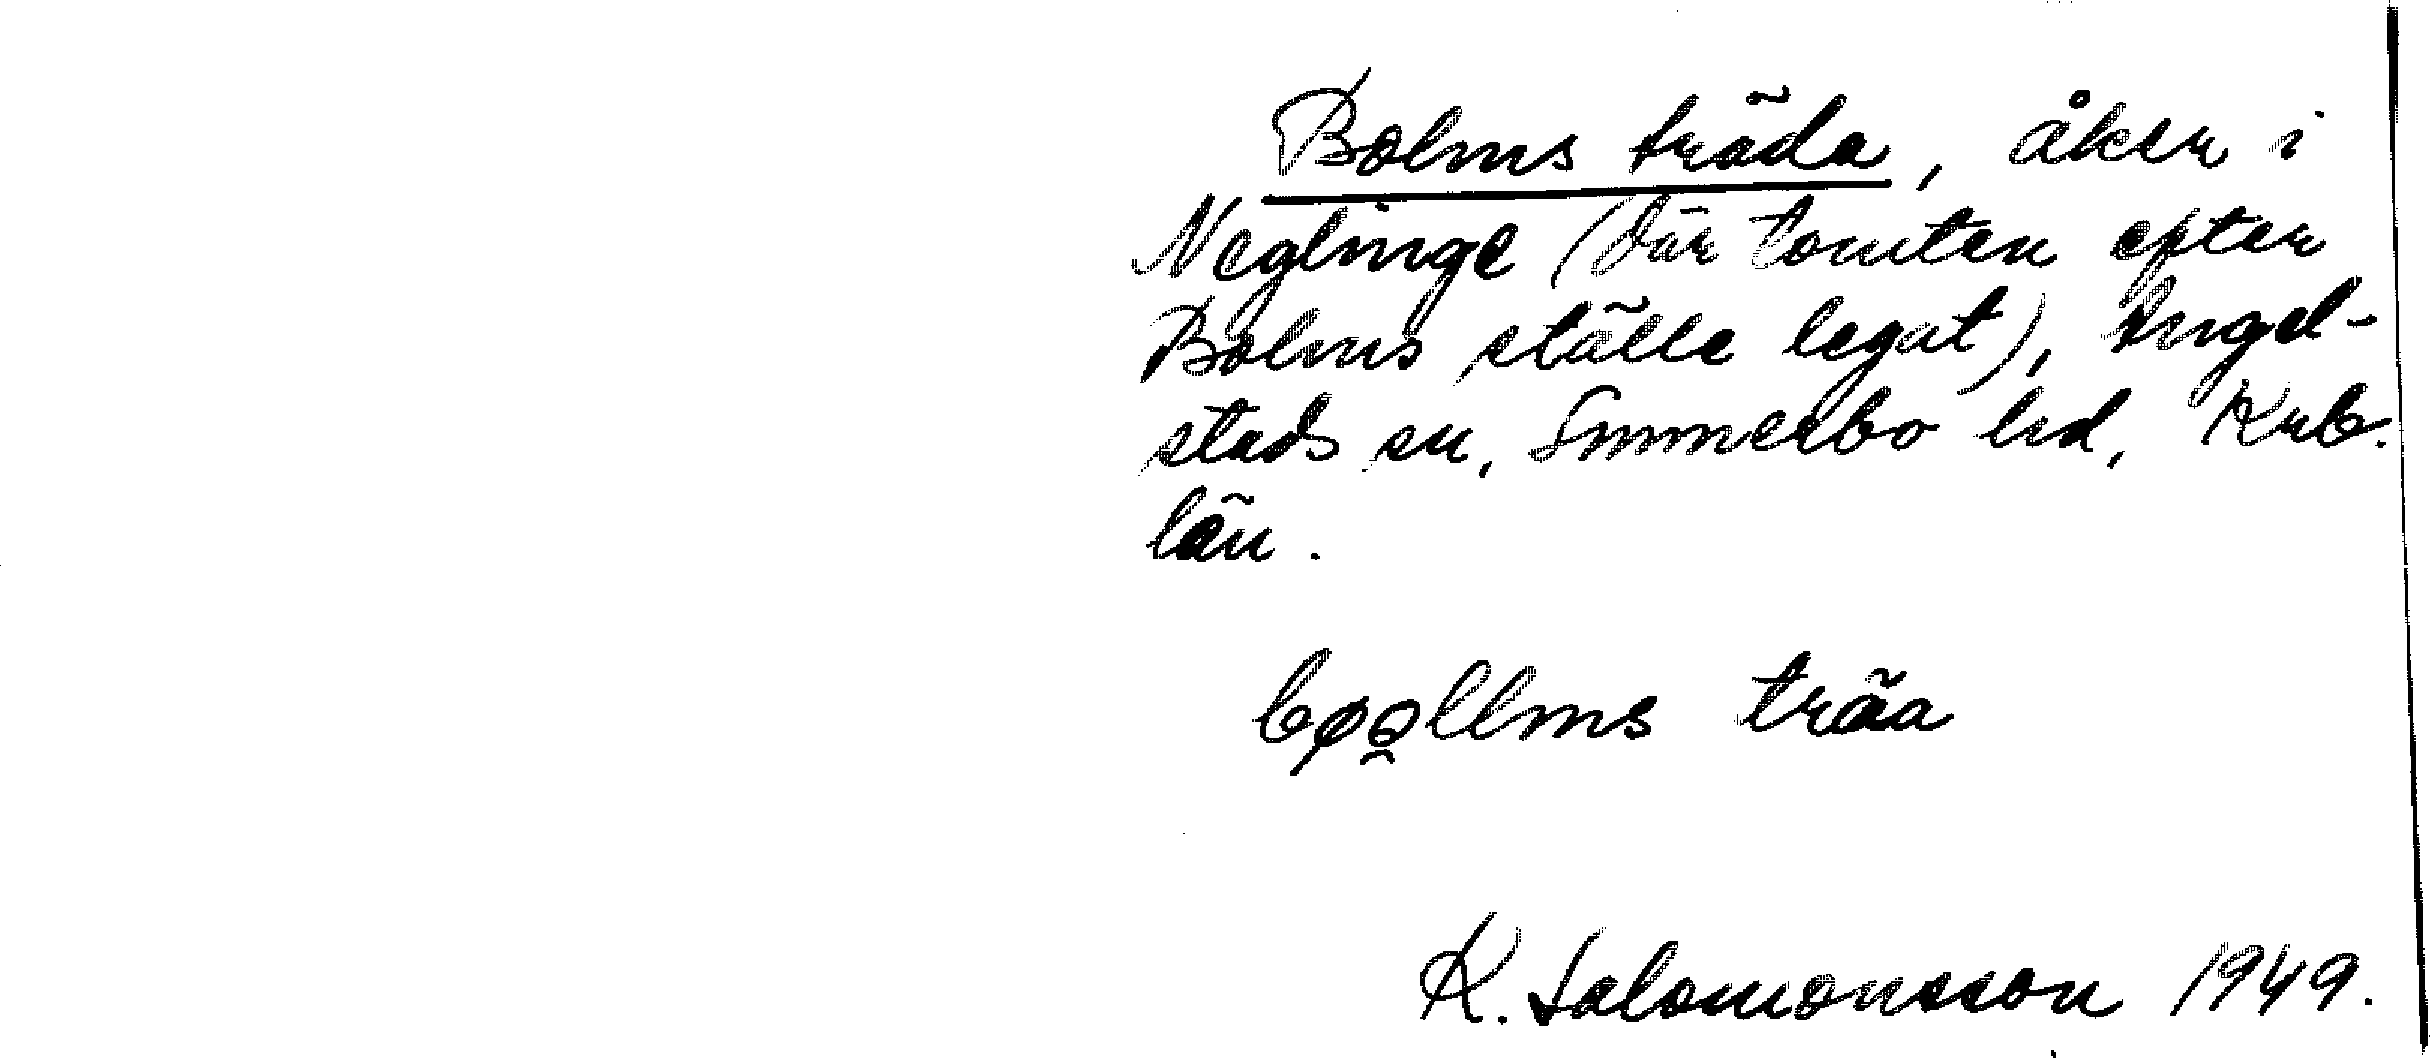 Bolms träda, åker i
Neglinge (där tomten efter
Bolms ställe legat), Angel-
stads sn, Sunnerbo hd, Krb.
län.
bφo̯llms träa
K. Salomonsson 1949.